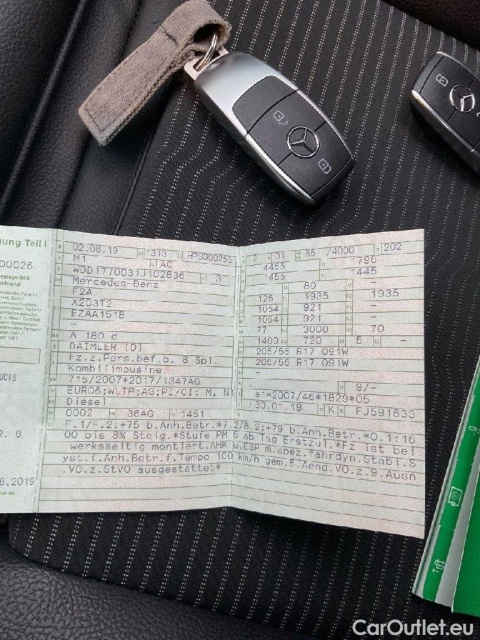 02.08.19 1313
M1 AC
WDD1770031J102836 3
Mercedes-Benz
F2A
X2D3T2
EZAA1518
-
A 180 d
DAIMLER (D)
Fz.z.Pers.bef.b. 8 Spl.
Kombilimousine
715/2007*2017/1347AG
EURO6;WLTP;AG;PI/CI; M, N
Diesel
0002 36AG 1451
01 85 /4000 202
4455 1796
455 1445
80 -
126 1935 1935
1054 921 -
1054 921 -
77 3000 70
1400 720 5 -
205/55 R17 091W
205/55 R17 091W
-
9/-
e1*2007/46*1829*05
30.01.19 K FJ591633
F.1/F.2:+75 b.Anh.Betr.*7.2/8.2:+79 b.Anh.Betr.*0.1:16
00 bis 8% Steig.*Stufe PM 5 ab Tag Erstzul.*Fz ist bei
werksseitig montiert.AHK u.ESP m.spez.fahrdyn.Stabi.S
yst.f.Anh.Betr.f.Tempo 100 km/h gem.6.Aend.VO.z.9.Ausn
.VO.z.StVO ausgestattet*
8.2019
CarOutlet.eu